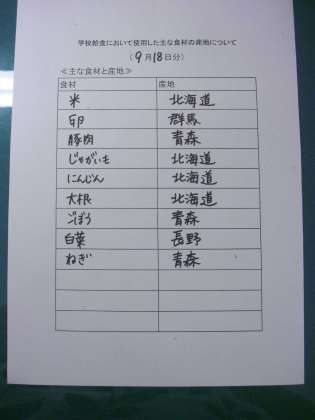 学校給食において使用した主な食材の産地について
（9月18日分）
≪主な食材と産地≫
食材 産地
米 北海道
卵 群馬
豚肉 青森
じゃがいも 北海道
にんじん 北海道
大根 北海道
ごぼう 青森
白菜 長野
ねぎ 青森